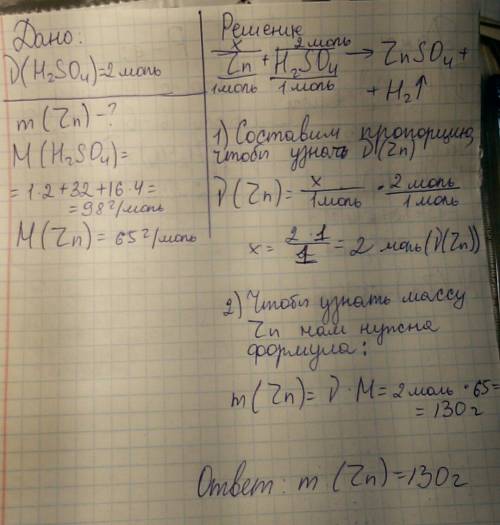 Дано:
ν(H₂SO₄)=2моль
m(Zn)-?
M(H₂SO₄)=
=1·2+32+16·4=
=98г/моль
M(Zn)=65г/моль
Решение
x 2моль
Zn+H₂SO₄→ZnSO₄+
1моль 1моль
+H₂↑
1) Составим пропорцию,
чтобы узнать ν(Zn)
ν(Zn)= x/1моль · 2моль/1моль
x= 2·1/1 = 2 моль(ν(Zn))
2) Чтобы узнать массу
Zn нам нужна
формула:
m(Zn)= ν·M=2моль·65=
=130г
Ответ: m(Zn)=130г